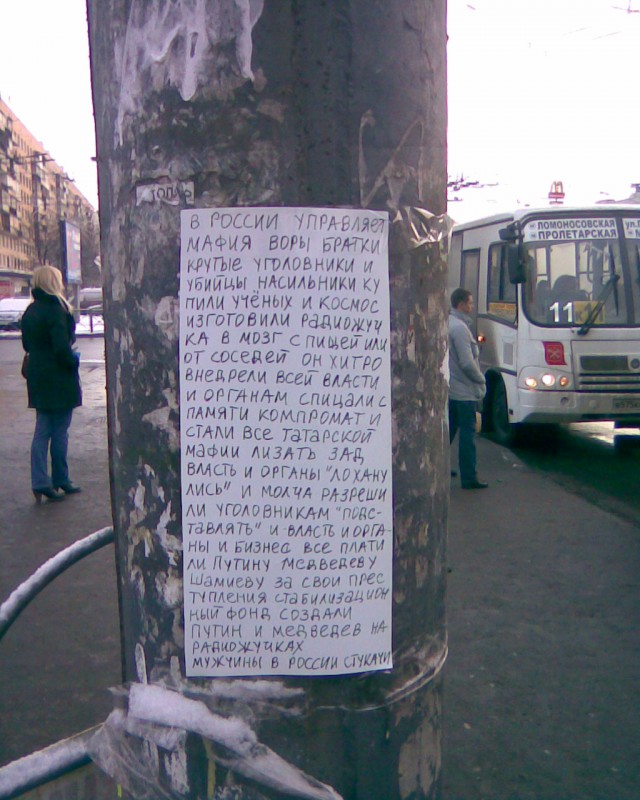 В РОССИИ УПРАВЛЯЕТ
МАФИЯ ВОРЫ БРАТКИ
КРУТЫЕ УГОЛОВНИКИ И
УБИЙЦЫ НАСИЛЬНИКИ КУ
ПИЛИ УЧЁНЫХ И КОСМОС
ИЗГОТОВИЛИ РАДИОЖУЧ
КА В МОЗГ С ПИЩЕЙ ИЛИ
ОТ СОСЕДЕЙ ОН ХИТРО
ВНЕДРЕЛИ ВСЕЙ ВЛАСТИ
И ОРГАНАМ СПИЦАЛИ С
ПАМЯТИ КОМПРОМАТ И
СТАЛИ ВСЕ ТАТАРСКОЙ
МАФИИ ЛИЗАТЬ ЗАД
ВЛАСТЬ И ОРГАНЫ "ЛОХАНУ
ЛИСЬ" И МОЛЧА РАЗРЕШИ
ЛИ УГОЛОВНИКАМ "ПОДС-
ТАВЛЯТЬ" И ВЛАСТЬ И ОРГА-
НЫ И БИЗНЕС ВСЕ ПЛАТИ
ЛИ ПУТИНУ МЕДВЕДЕВУ
ШАМИЕВУ ЗА СВОИ ПРЕС
ТУПЛЕНИЯ СТАБИЛИЗАЦИОН
НЫЙ ФОНД СОЗДАЛИ
ПУТИН И МЕДВЕДЕВ НА
РАДИОЖУЧКАХ
МУЖЧИНЫ В РОССИИ СТУКАЧИ
ЛОМОНОСОВСКАЯ
ПРОЛЕТАРСКАЯ
11